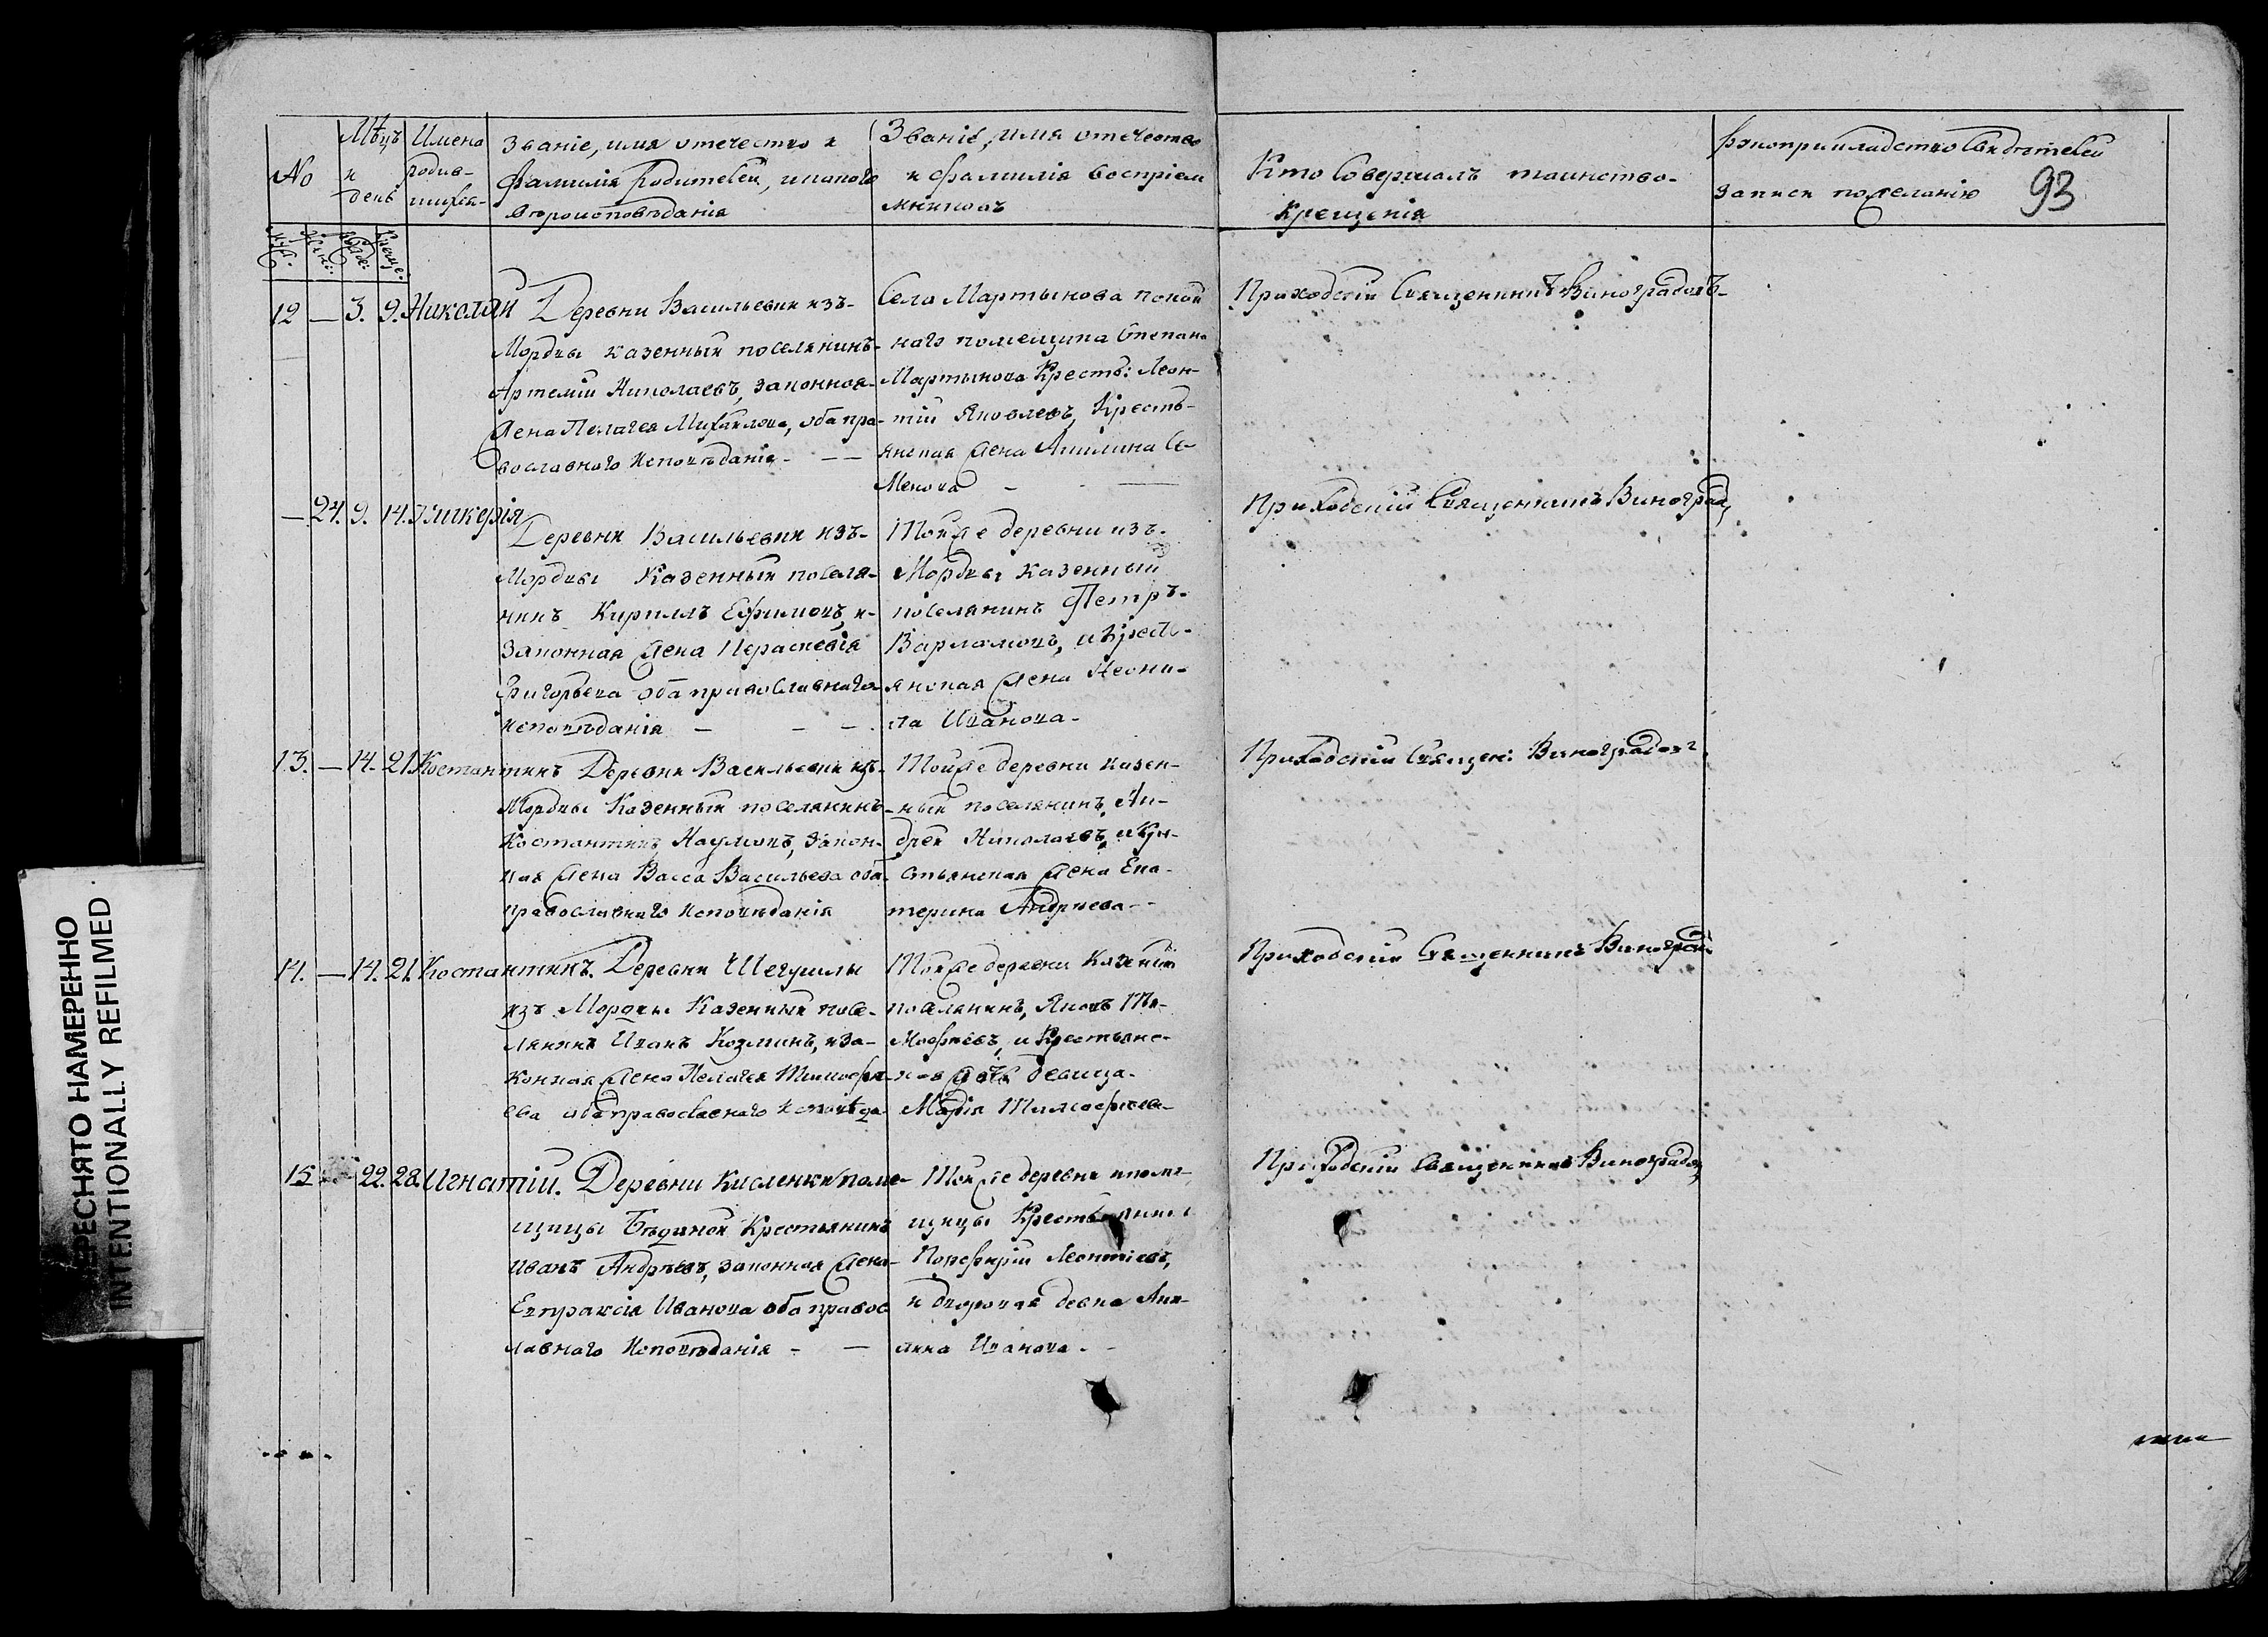 No
Мѣцъ
и
день
Имена
родив-
шихся-
Званіе, имя отечество и
фамилія Родителей, и какого
вѣроисповѣданія
Званіе, имя отечество
и фамилія воспріем
мниковъ
Кто Совершалъ таинство-
Крещенія
записи по желанію
93
12 — 3. 9. Николай
Деревни Васильевки изъ-
Мордвы казенный поселянинъ-
Артемій Николаевъ, законноя-
жена Пелагея Михайлова, оба пра-
вославного Исповѣданія - — —
Села Мартынова покой
наго помещика Степана
Мартынова Кресть: Леон-
тій Яковлевъ, Кресть-
янская жена Акилина Се-
Менова - —
Приходскій Священникъ Виноградовъ-
— 24. 9. 14. Гликерія
Деревни Васильевки изъ-
Мордвы Казенный поселя-
нинъ Кириллъ Ефимовъ, и-
законная жена Параскевія
Григорьева оба православнаго-
исповѣданія — - —
Тойже деревни изъ-
Мордвы казенный
поселянинъ Петръ-
Варламовъ, и Кресть-
янская жена Неони-
ла Иванова-
Приходскій Священникъ Виноград,
13. — 14. 21. Костантинъ
Деревни Васильевки изъ-
Мордвы Казенный поселянинъ
Костантинъ Наумовъ, закон-
ная жена Васса Васильева оба
православнаго исповѣданія
Тойже деревни казен-
ный поселянинъ, Ан-
дрей Николаевъ, и Кре-
стьянская жена Ека-
терина Андреева - -
Приходскій Священ: Виноградовъ
14. — 14. 21. Костантинъ.
Деревни Шегушлы
изъ Мордвы Казенный посе-
лянинъ Иванъ Козминъ, и за-
конная жена Пелагея Тимофе-
ева оба православнаго исповѣда-
Тойже деревни Казеный
поселянинъ, Яковъ Ти-
Мофеевъ, и Крестьянс-
кая дочь девица-
Марія Тимофеева-
Приходскій Священникъ Виноград-
15 22. 28. Игнатій.
Деревни Кисленки поме-
щицы Бѣдиной Крестьянинъ
Иванъ Андрѣевъ, законная жена-
Евпраксія Иванова оба правос
лавнаго Исповѣданія - —
Тойже деревни и поме-
щицы Крестьянинъ
Порфирій Леонтіевъ,
и дворовая девка Ани-
Иванова - -
Приходскій Священникъ Виноградов,
ПЕРЕСНЯТО НАМЕРЕННО
INTENTIONALLY REFILMED